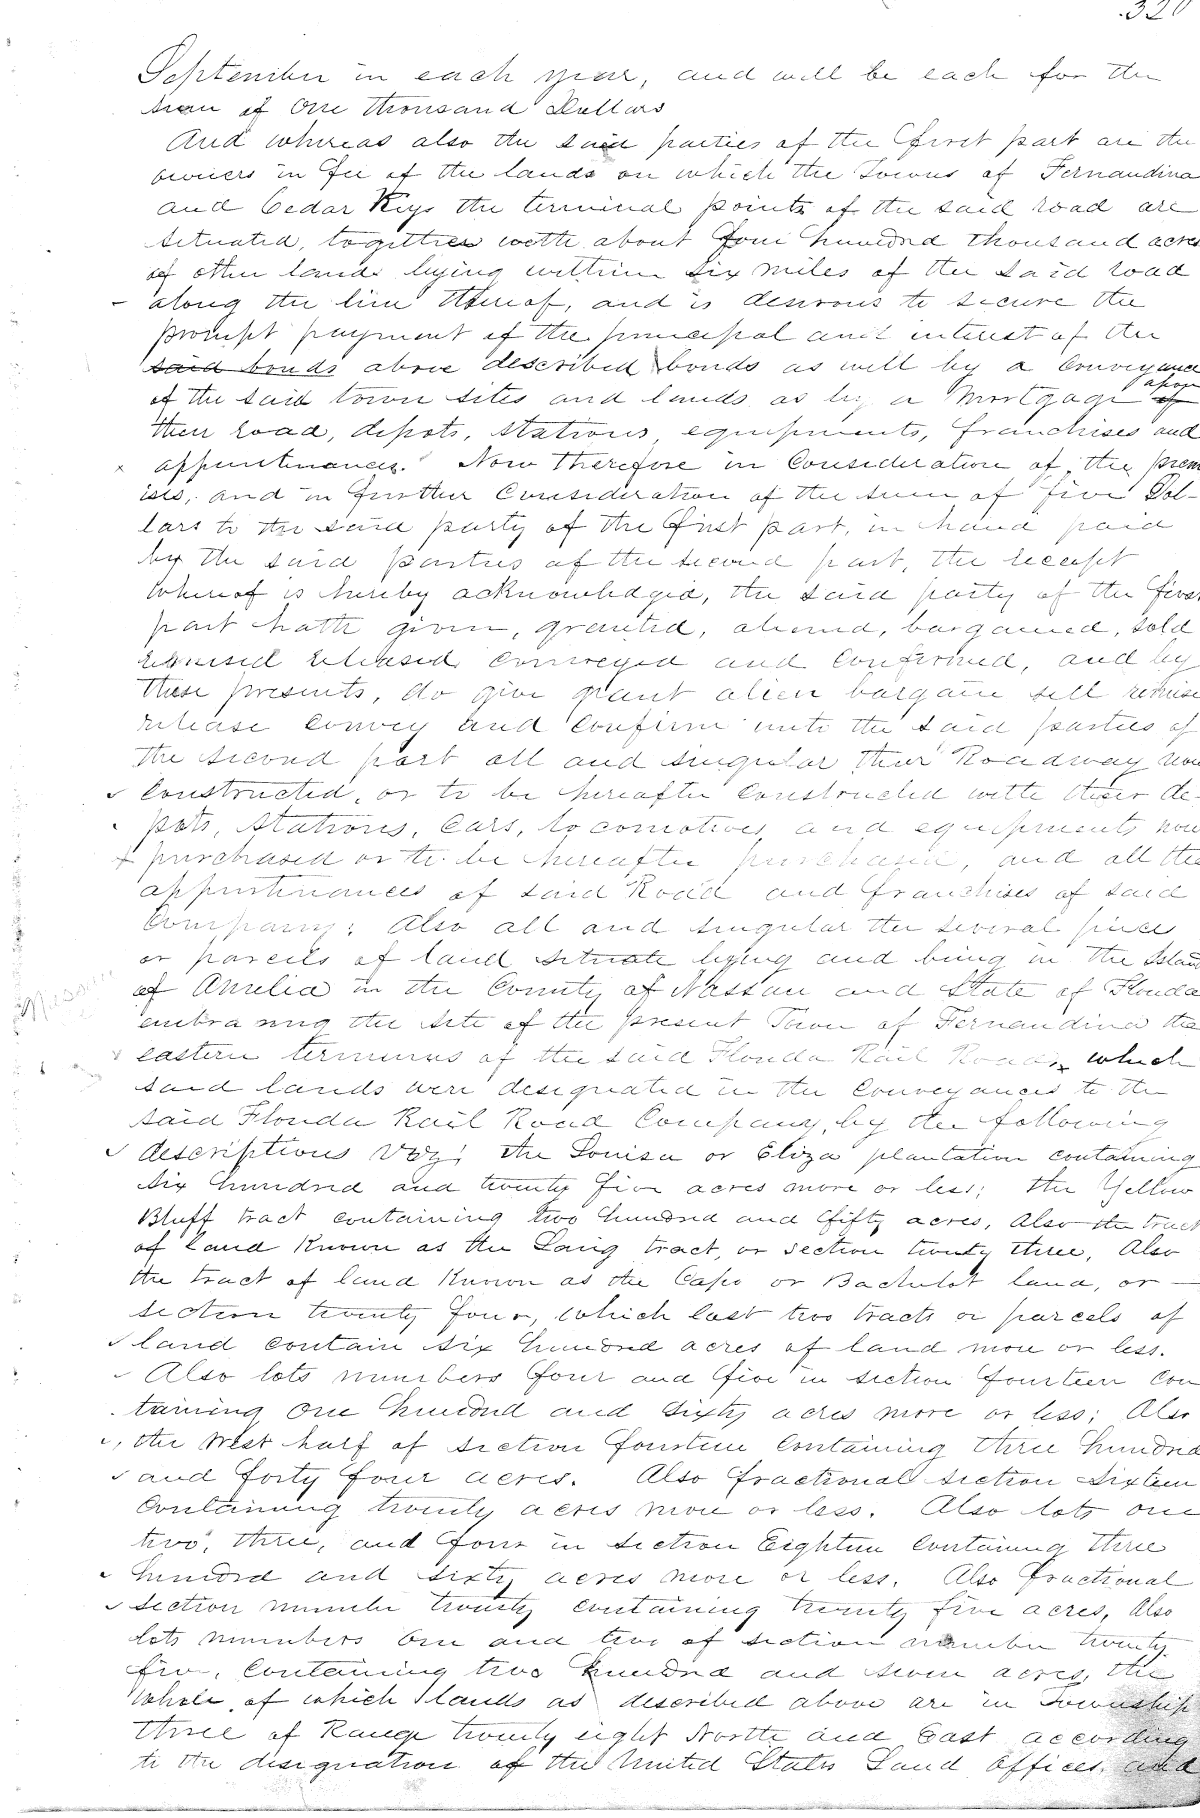 320
September in each year, and will be each for the
sum of One thousand Dollars
And whereas also the said parties of the first part are the
owners in fee of the lands on which the Towns of Fernandina
and Cedar Keys the terminal points of the said road are
situated, together with about four hundred thousand acres
of other lands lying within six miles of the said road
along the line thereof, and is desirous to secure the
prompt payment of the principal and interest of the
said bonds above described bonds as well by a conveyance
of the said town sites and lands as by a Mortgage of upon
their road, depots, stations, equipments, franchises and
appurtenances. Now Therefore in Consideration of the prem
ises, and in further Consideration of the sum of five Dol-
lars to the said party of the first part, in hand paid
by the said parties of the second part, the receipt
whereof is hereby acknowledged, the said party of the first
part hath given, granted, aliened, bargained, sold
remised released conveyed and confirmed, and by
these presents, do give grant alien bargain sell remise
release convey and confirm unto the said parties of
the second part all and singular their Roadway now
constructed, or to be hereafter constructed with their de-
pots, stations, cars, locomotives, and equipments now
purchased or to be hereafter purchased, and all the
appurtenances of said Road and franchises of said
Company; Also all and singular the several piece
or parcels of land situate lying and being in the Island
of Amelia in the County of Nassau and State of Florida
embraring the site of the present Town of Fernandina the
eastern terminus of the said Florida Rail Road, which
said lands were designated in the Conveyances to the
said Florida Rail Road Company, by the following
descriptions Viz; the Louisa or Eliza plantation containing
six hundred and twenty five acres more or less; the Yellow
Bluff tract containing two hundred and fifty acres, Also the tract
of land Known as the Lang tract, or section twenty three, Also
the tract of land Known as the Capo or Bachelot land, or —
section twenty four, which last two tracts or parcels of
land contain six hundred acres of land more or less.
Also lots numbers four and five in section fourteen Con
taining One hundred and sixty acres more or less; Also
the West half of section fourteen containing three hundred
and forty four acres. Also fractional section sixteen
Containing twenty acres more or less. Also lots one
two, three, and four in section Eighteen Containing three
hundred and sixty acres more or less. Also fractional
section number twenty containing twenty five acres, Also
lots numbers One and two of section number twenty
five, Containing two hundred and seven acres, the
whole of which lands as described above are in Township
three of Range twenty eight North and East according
to the designation of the United States Land Offices, and